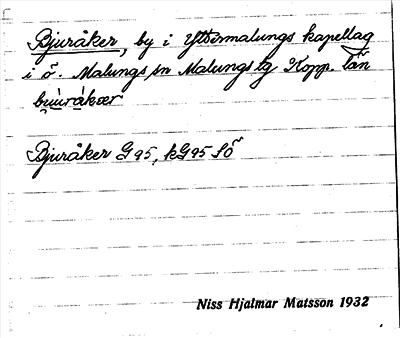 Bjuråker, by i Yttermalungs kapellag
i ö. Malungs sn Malungs tg Kopp. län

Bjuråker G 95, kG95 Sö
Niss Hjalmar Matsson 1932